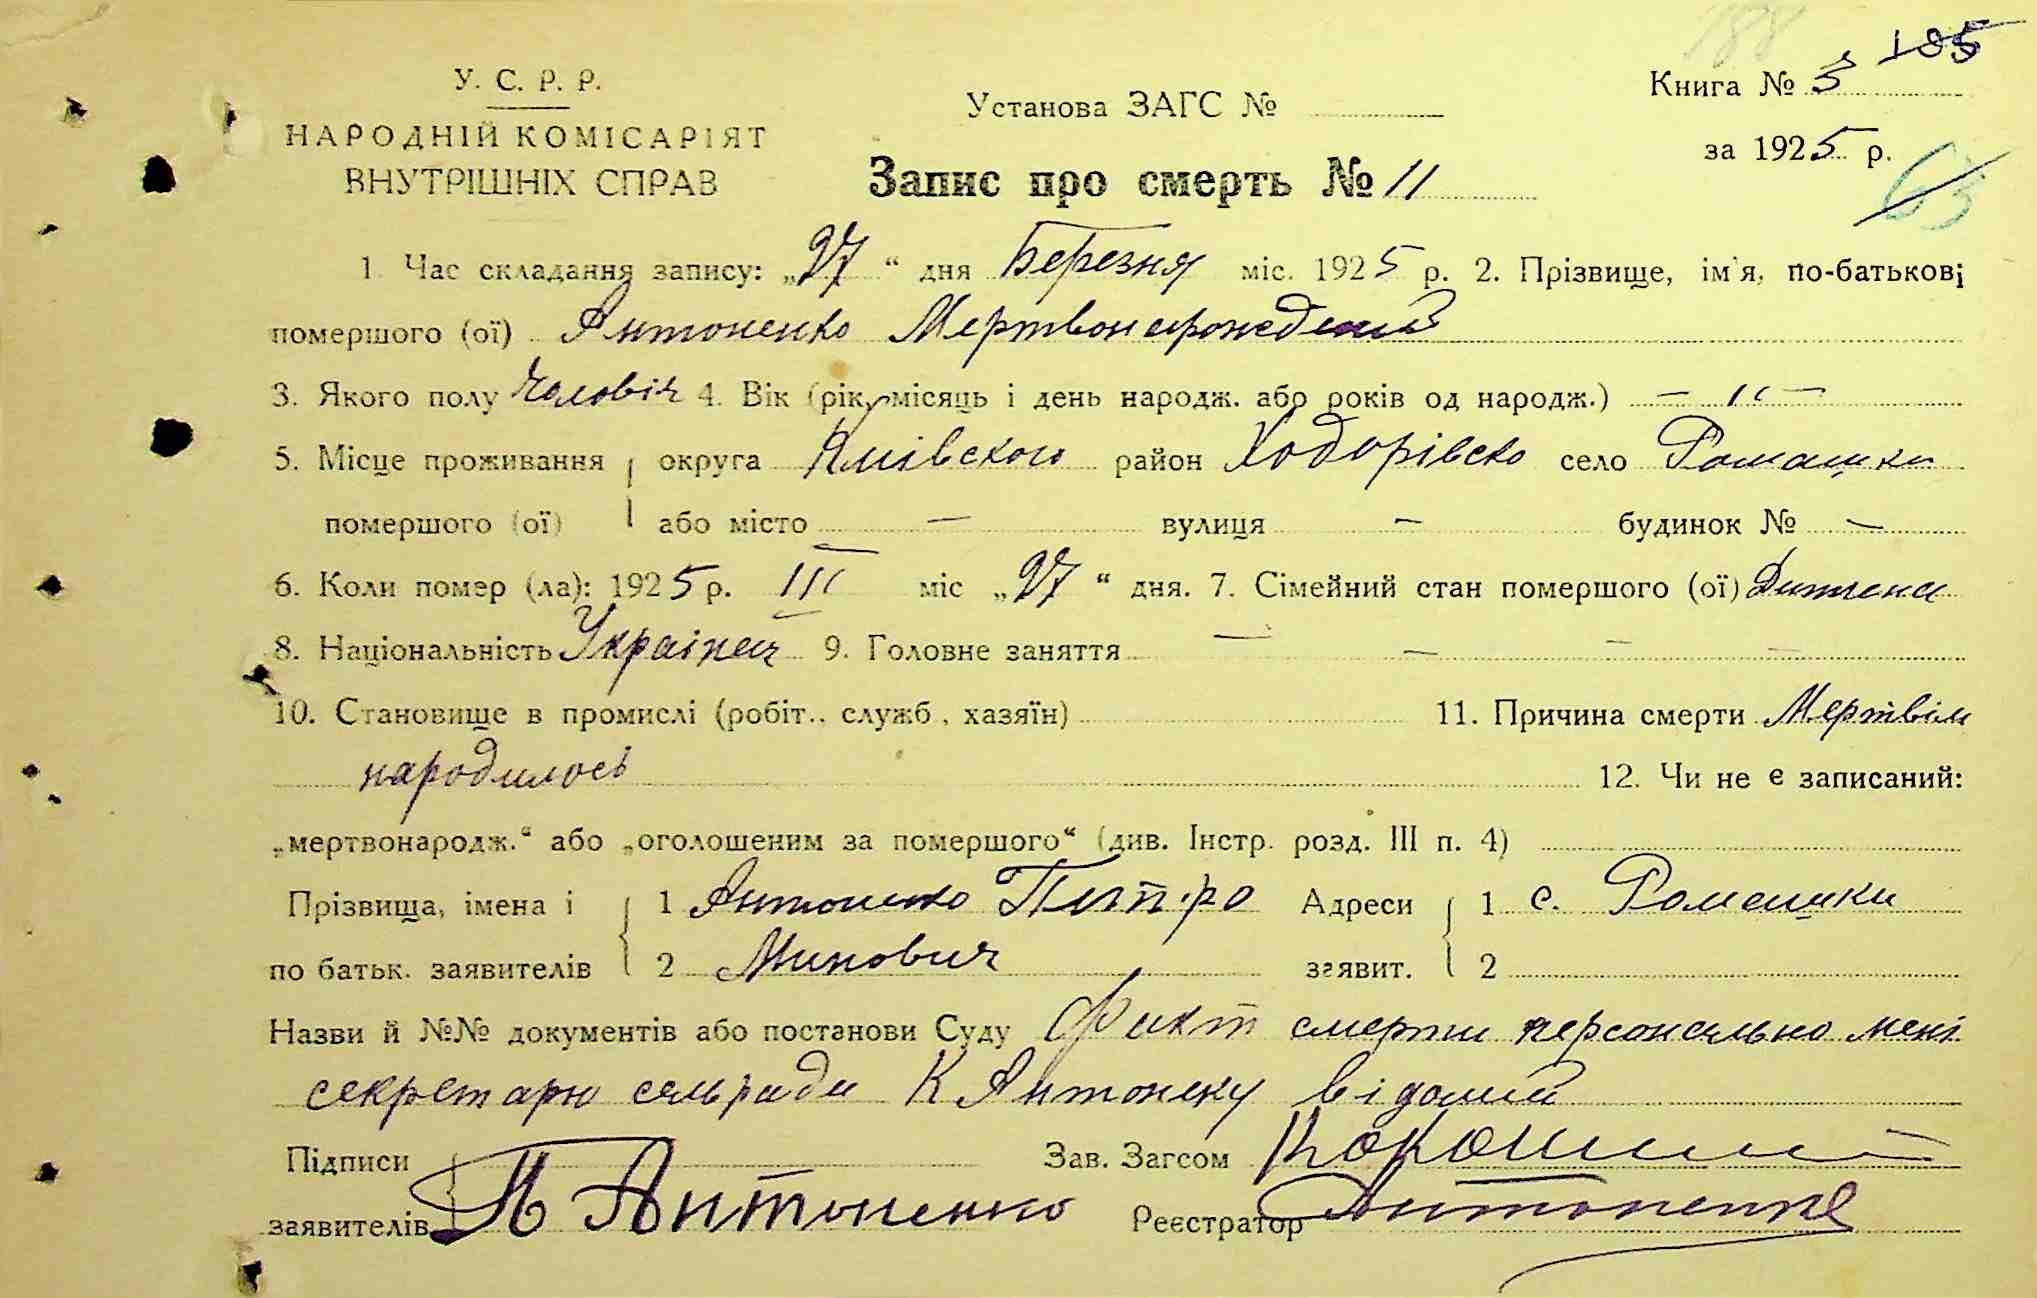 188
185
У. С. Р. Р.
НАРОДНІЙ КОМІСАРІЯТ
ВНУТРІШНІХ СПРАВ
Установа ЗАГС №
Книга № 3
за 1925 р.
63
Запис про смерть № 11
1. Час складання запису: „27“ дня Березня міс. 1925 р. 2. Прізвище, ім'я, по-батькові
помершого (ої) Антоненко
3. Якого полу Чоловіч 4. Вік (рік, місяць і день народж. або років од народж.) — 11 —
5. Місце проживання округа район Ходорівско село Ромашки
помершого (ої) або місто — вулиця — будинок № —
6. Коли помер (ла): 1925 р. III міс „27“ дня. 7. Сімейний стан помершого (ої) Дитина
8. Національність Українец 9. Головне заняття — — — —
10. Становище в промислі (робіт.. служб, хазяїн) 11. Причина смерти Мертвім
народилось 12. Чи не є записаний:
„мертвонародж.“ або „оголошеним за помершого“ (див. Інстр. розд. III п. 4)
Прізвища, імена і 1 Антоненко Питро Адреси 1 с. Ромашки
по батьк. заявителів 2 Минович заявит. 2
Назви й №№ документів або постанови Суду Факт смерти персонально мені
секретарю сельради К Антонеку відомий
Підписи Зав. Загсом
заявителів П Антоненко Реєстратор Антоненко